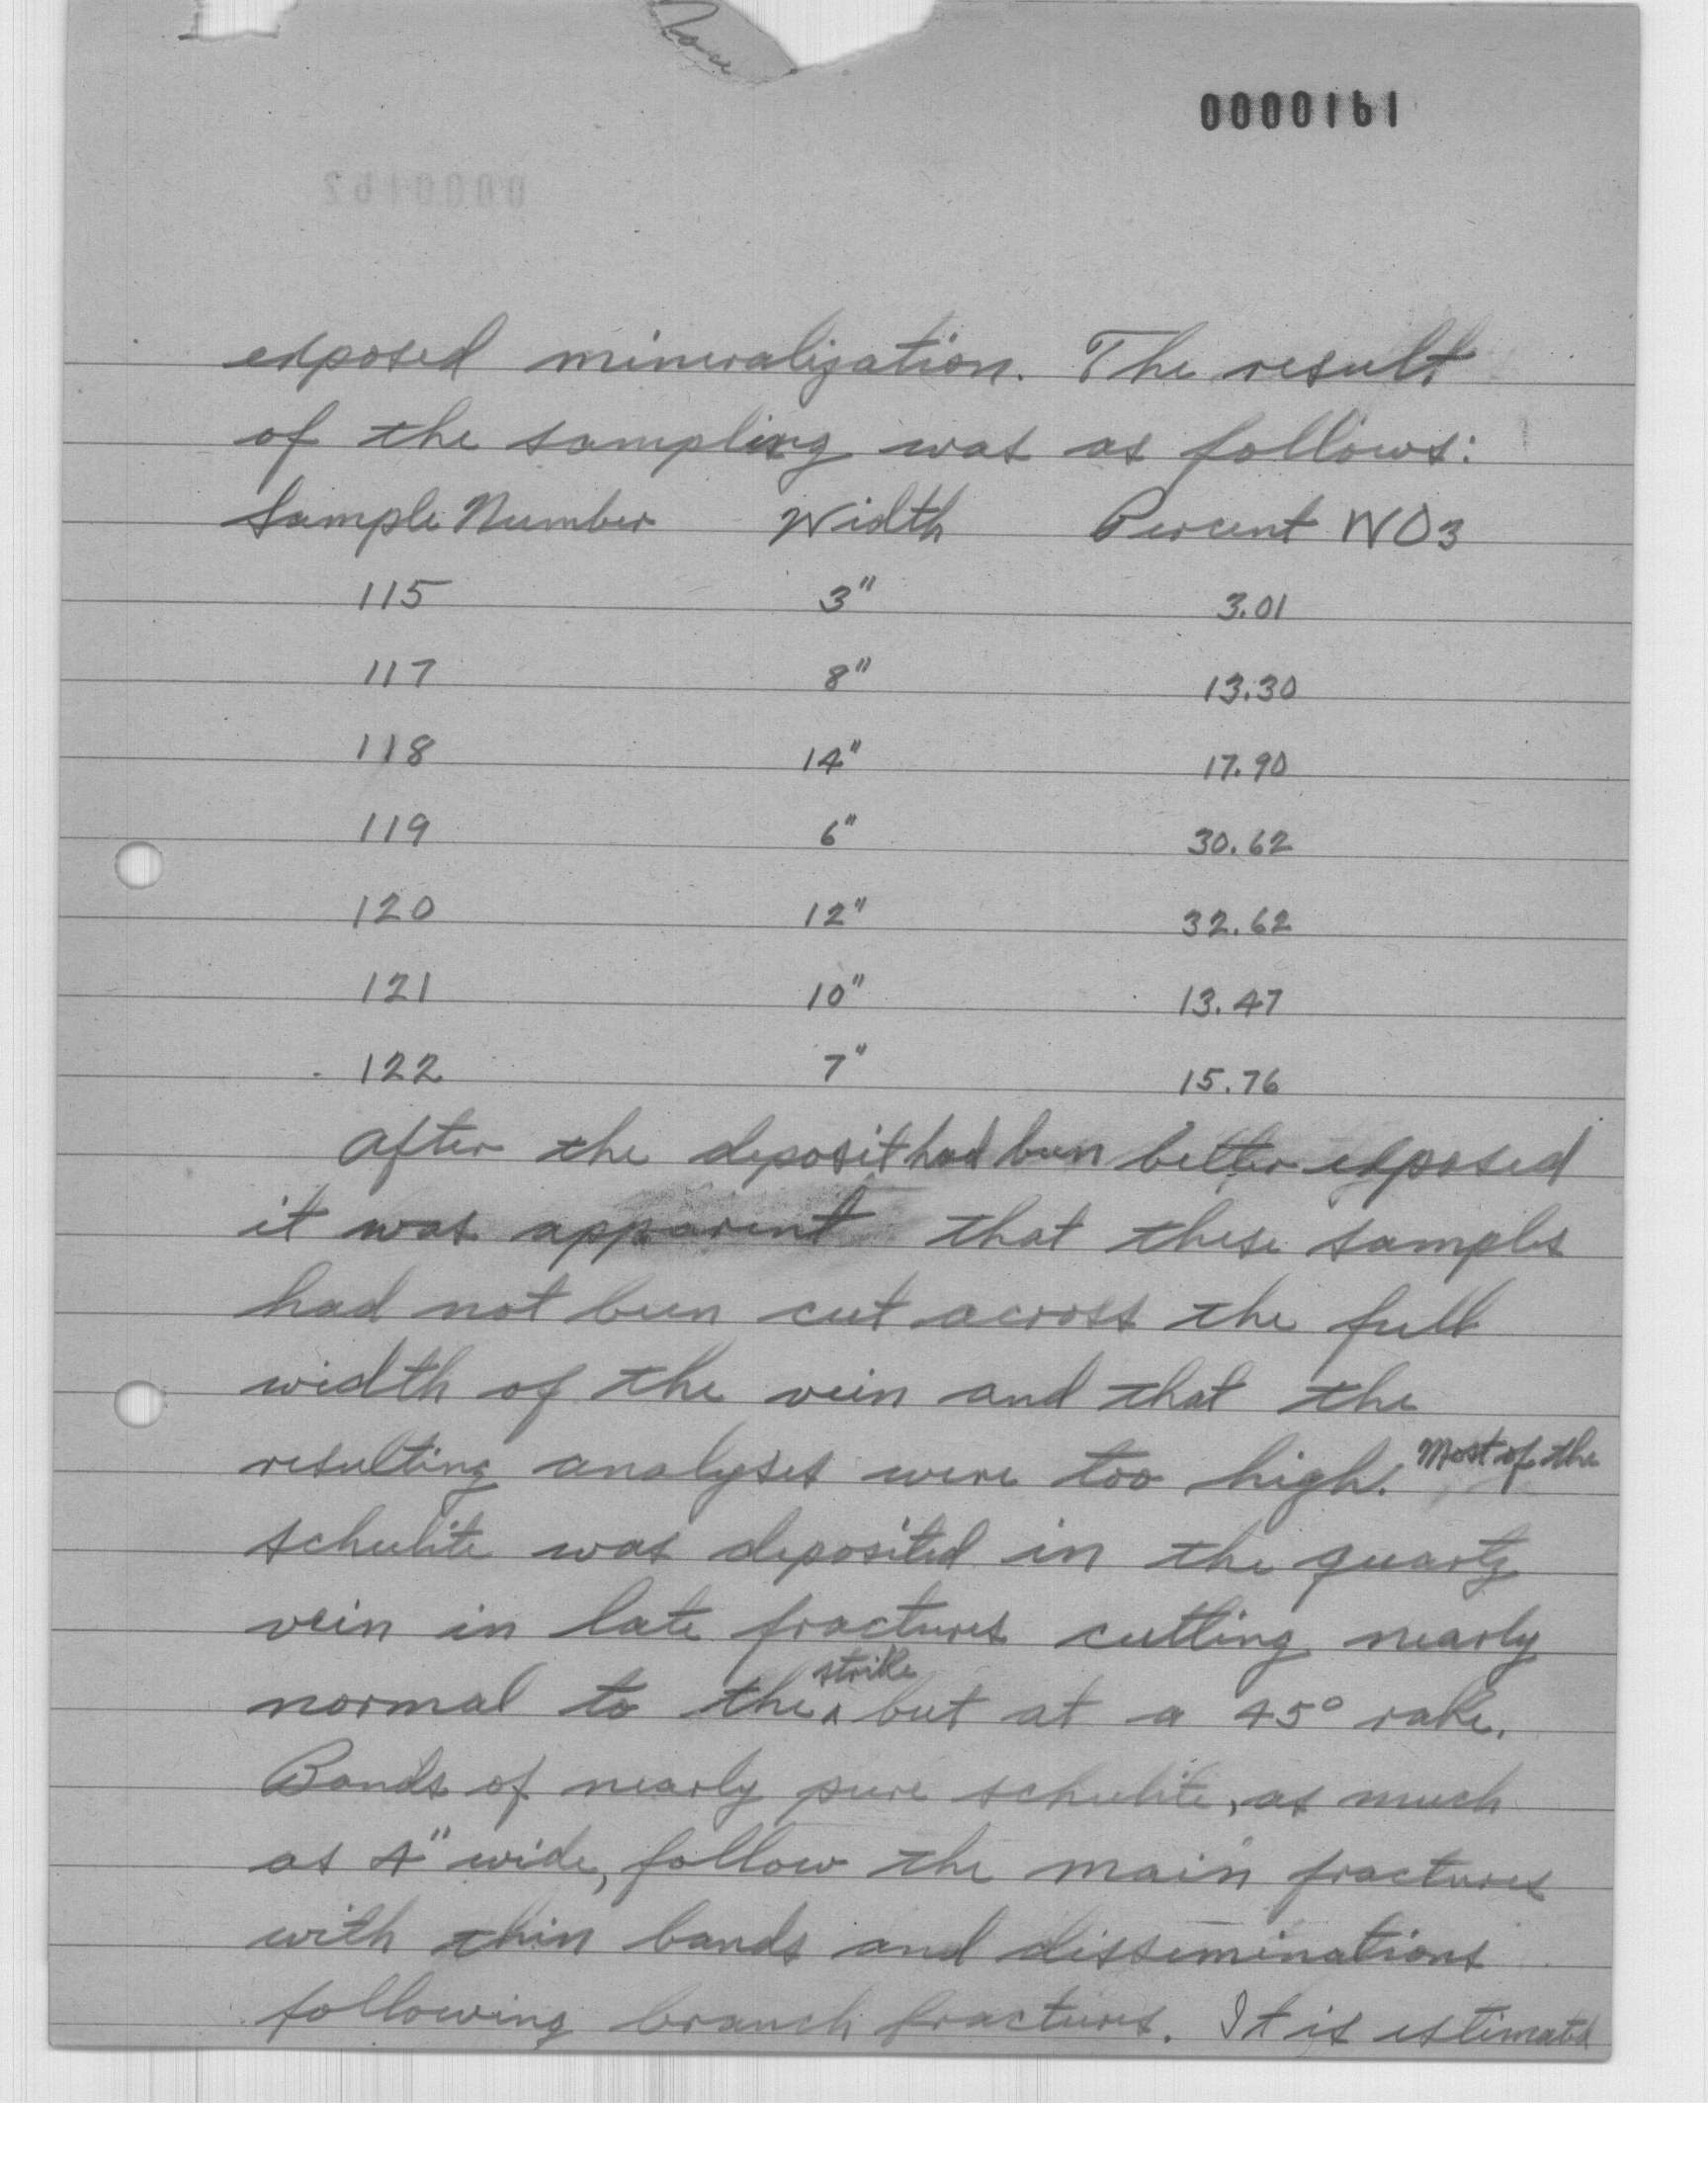 0000161
exposed mineralization. The result
of the sampling was as follows:
Sample Number Width Percent WO3
115 3" 3.01
117 8" 13.30
118 14" 17.90
119 6" 30.62
120 12" 32.62
121 10" 13.47
122 7" 15.76
After the deposit had been better exposed
it was apparent that these samples
had not been cut across the full
width of the vein and that the
resulting analyses were too high. Most of the
scheelite was deposited in the quartz
vein in late fractures cutting nearly
normal to the ^ strike but at a 45° rake.
Bands of nearly pure scheelite, as much
as 4" wide, follow the main fractures
with thin bands and disseminations
following branch fractures. It is estimated